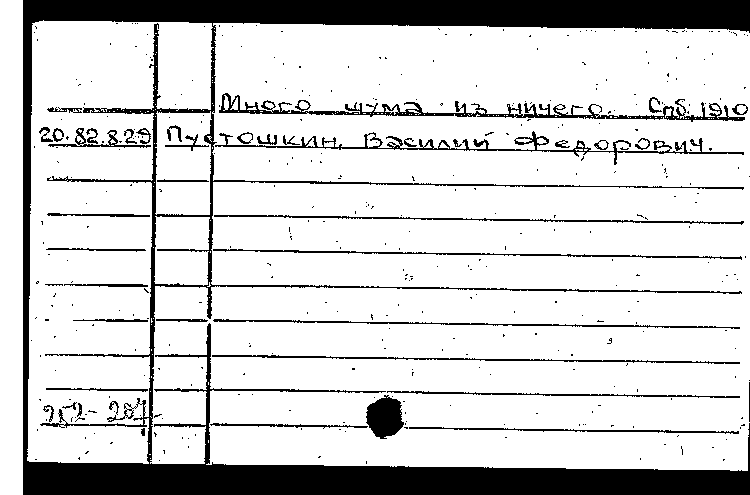 Много шума из ничего. Спб, 1910
20.82.8.29 Пустошкин, Василий Федорович.
252-287